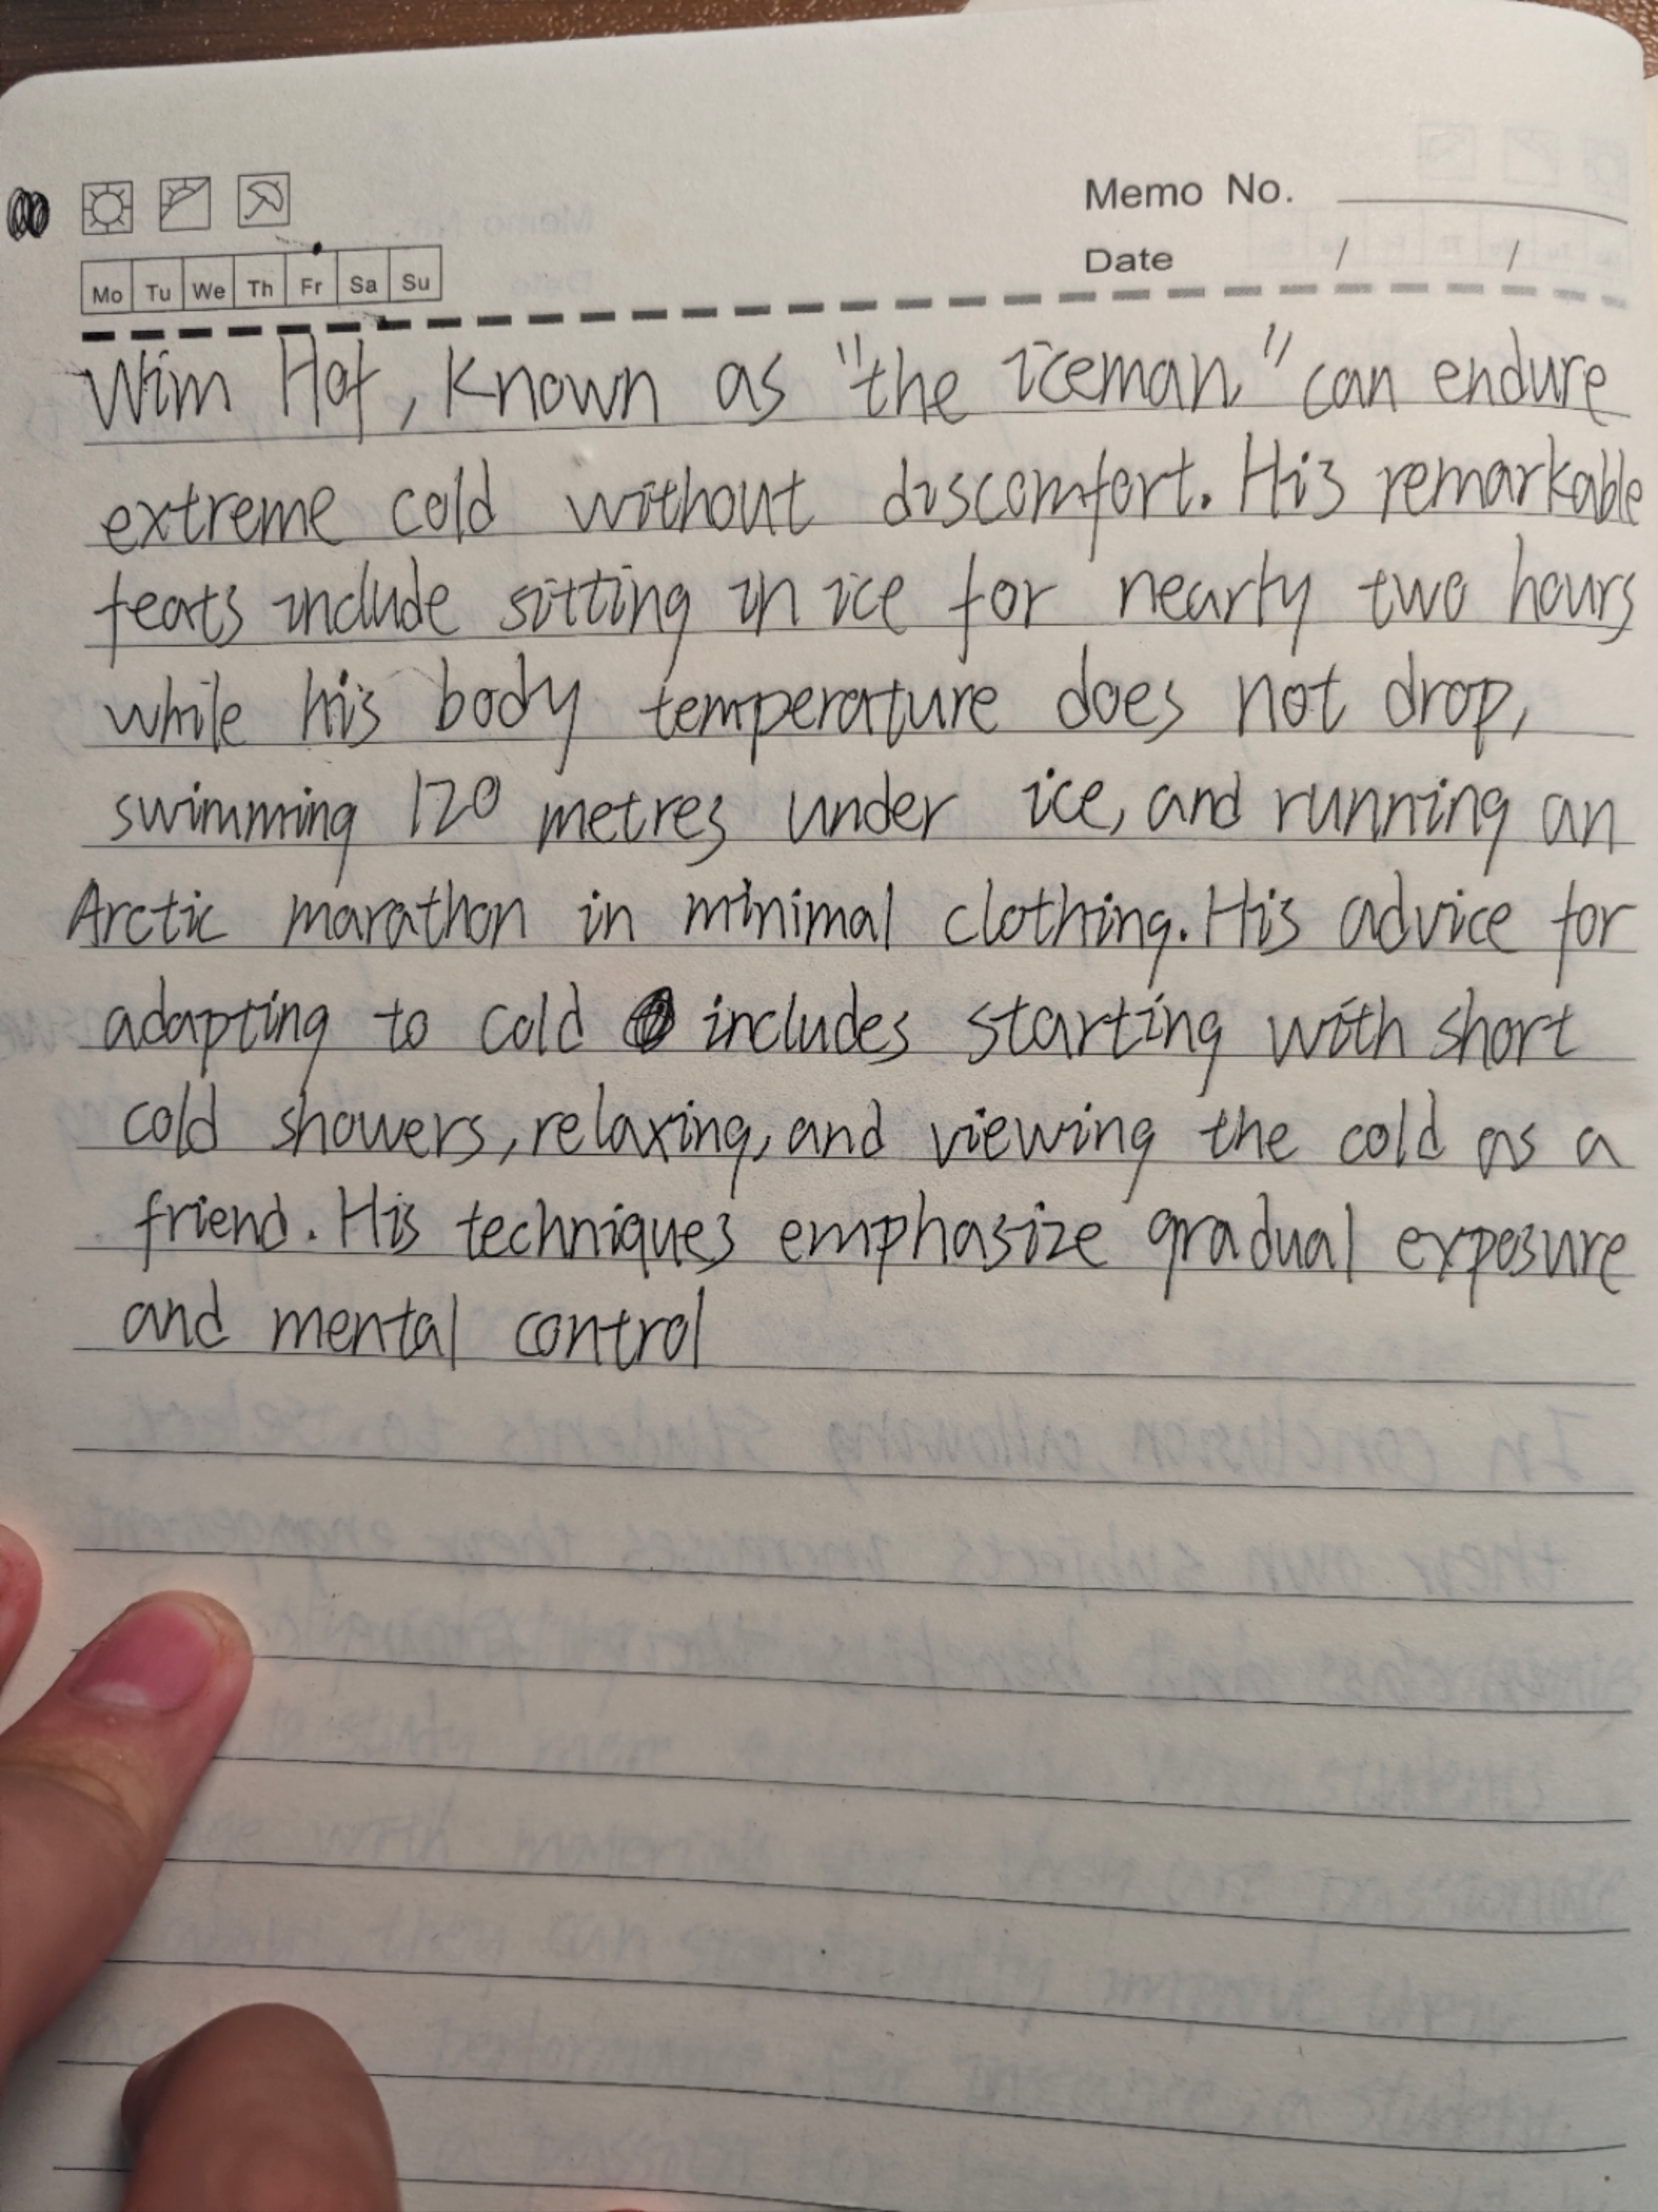 Memo No.
Date / /
Mo Tu We Th Fr Sa Su
Wim Hof, Known as "the iceman," can endure
extreme cold without discomfort. His remarkable
feats include sitting in ice for nearly two hours
while his body temperature does not drop,
swimming 120 metres under ice, and running an
Arctic marathon in minimal clothing. His advice for
adapting to cold includes starting with short
cold showers, relaxing, and viewing the cold as a
friend. His techniques emphasize gradual exposure
and mental control